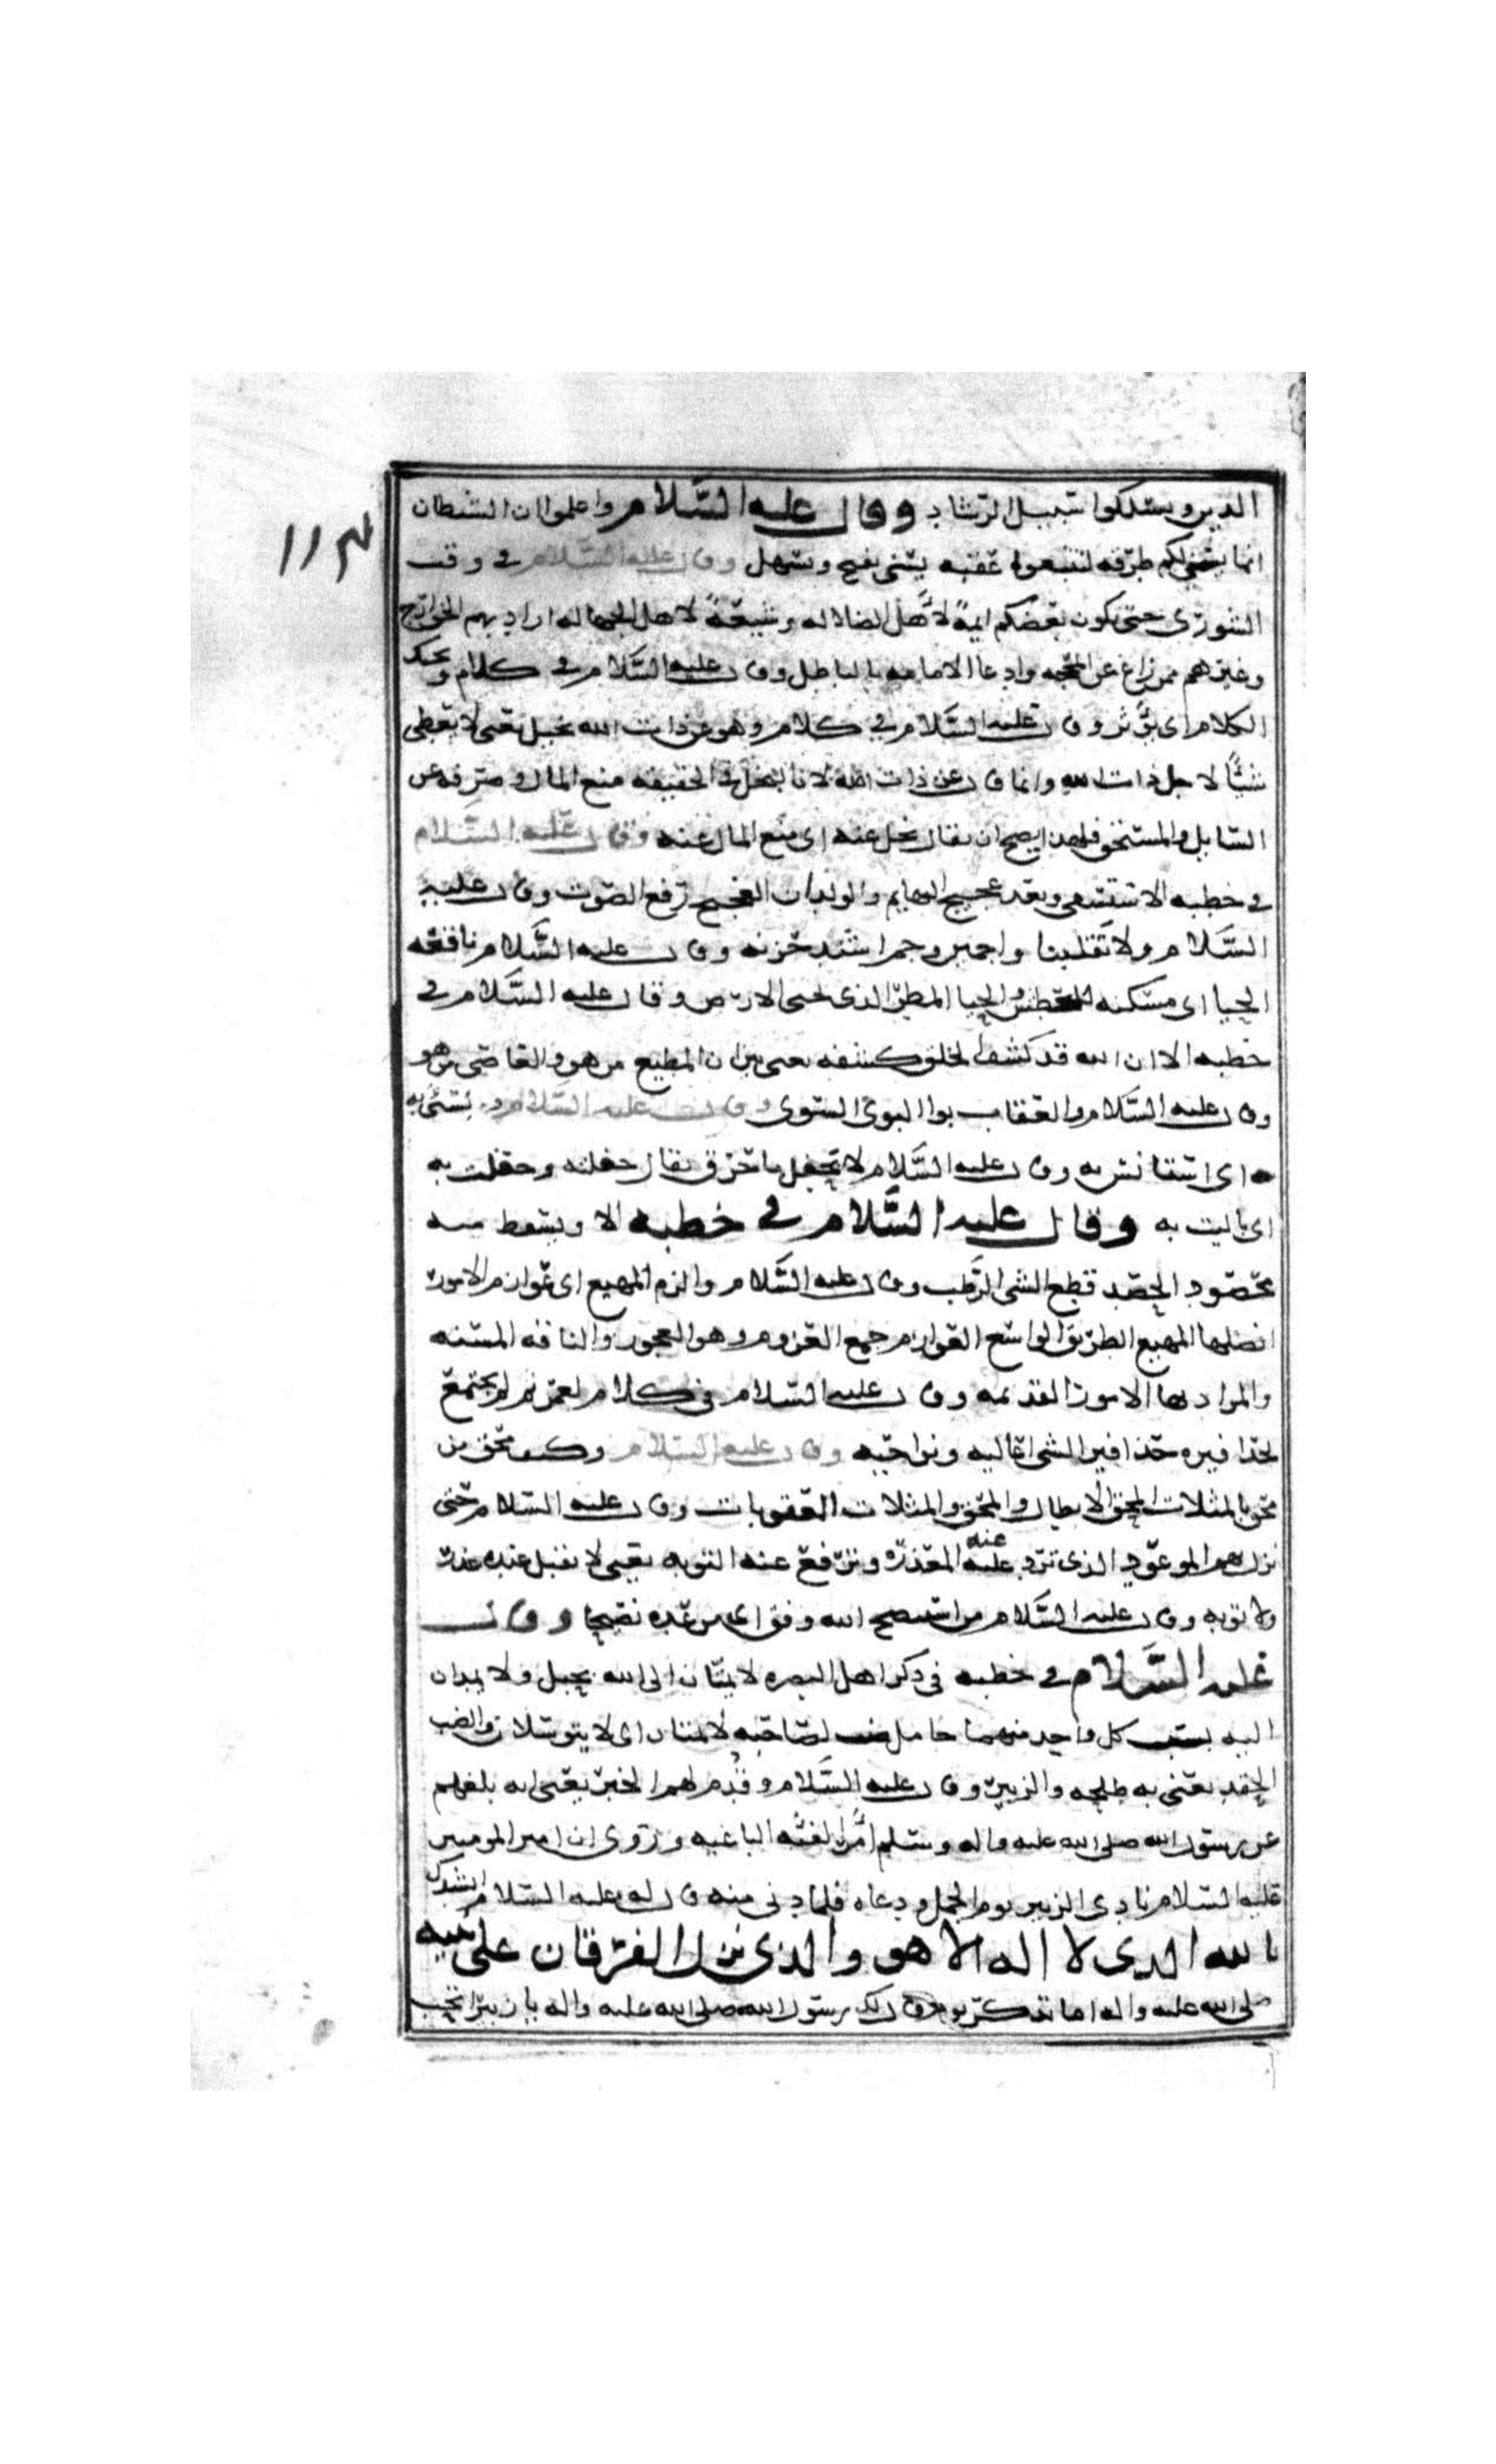 ١١٣
الدين ويسلكوا سبيل الرشاد وقال عليه السلام واعلموا ان الشيطان
انما يسني لكم طرقه لتتبعوا عقبه يسني يفتح ويسهل وقال عليه السلام في وقت
الشورى حتى يكون بعضكم ايمة لأهل الضلاله وشيعة لاهل الجهاله اراد بهم الخوارج
وغيرهم ممن زاغ عن الحجه وادعا الامامه بالباطل وقال عليه السلام في كلام ويحيك
الكلام اي يؤثر وقال عليه السلام في كلام وهو عن ذات الله بخيل يعني لا يعطي
شيئا لاجل ذات الله وانما قال عن ذات الله لان البخل في الحقيقه منع المال وصرفه عن
السايل والمستحق فلهذا يصح ان يقال بخل عنه اي منع المال عنه وقال عليه السلام
في خطبه الاستسقي وبعد عجيج البهايم والولدان العجيج رفع الصوت وقال عليه
السلام ولا تقلبنا واجمين وجم اشتد حزنه وقال عليه السلام ناقعه
الحيا اي مسكنه للعطش والحيا المطر الذي يحيي الارض وقال عليه السلام في
خطبه الا ان الله قد كشف الخلق كشفه يعني بين ان المطيع من هو والعاصي من هو
وقال عليه السلام والعقاب بواا البوئ السوي وقال عليه السلام بسئ به
اي استانس به وقال عليه السلام لا تحفل ما حرق يقال حفلته وحفلت به
اي باليت به وقال عليه السلام في خطبه الا ويسقط منه
محصود الحصد قطع الشي الرطب وقال عليه السلام والزم المهيع اي عوازم الامور
افضلها المهيع الطريق الواسع العوازم جمع العزوم وهو العجوز والناقه المسنه
والمراد بها الامور القديمه وقال عليه السلام في كلام لعمر لم يجتمع
بحذافيره حذافير الشي اعاليه ونواحيه وقال عليه السلام وكيف محق من
محق بالمثلات المحق الابطال والمحق والمثلات العقوبات وقال عليه السلام حتى
نزل بهم الموعود الذي ترد عنه المعذره وترفع عنه التوبه يعني لا تقبل عنده عذر
ولا توبه وقال عليه السلام من استنصح الله وفق اي من عده نصيحا وقال
عليه السلام في خطبه في ذكر اهل البصره لا يمتان الى الله بحبل ولا يمدان
اليه بسبب كل واحد منهما حامل ضب لصاحبه لا يمتان اي لا يتوسلان والضب
الحقد يعني به طلحه والزبير وقال عليه السلام وقدم لهم الخبر يعني انه بلغهم
عن رسول الله صلى الله عليه واله وسلم امر الفئه الباغيه وروى ان امير المومنين
عليه السلام نادى الزبير يوم الجمل ودعاه فلما دنى منه قال له عليه السلام انشدك
بالله الذي لا اله الا هو والذي نزل الفرقان على نبيه
صلى الله عليه واله اما تذكر يوم قال لك رسول الله صلى الله عليه واله يا زبير اتحب